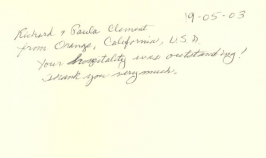 19-05-03
Richard & Paula Clemont
from Orange, California, U.S.A.
Your hospitality was outstanding!
Thank you very much.